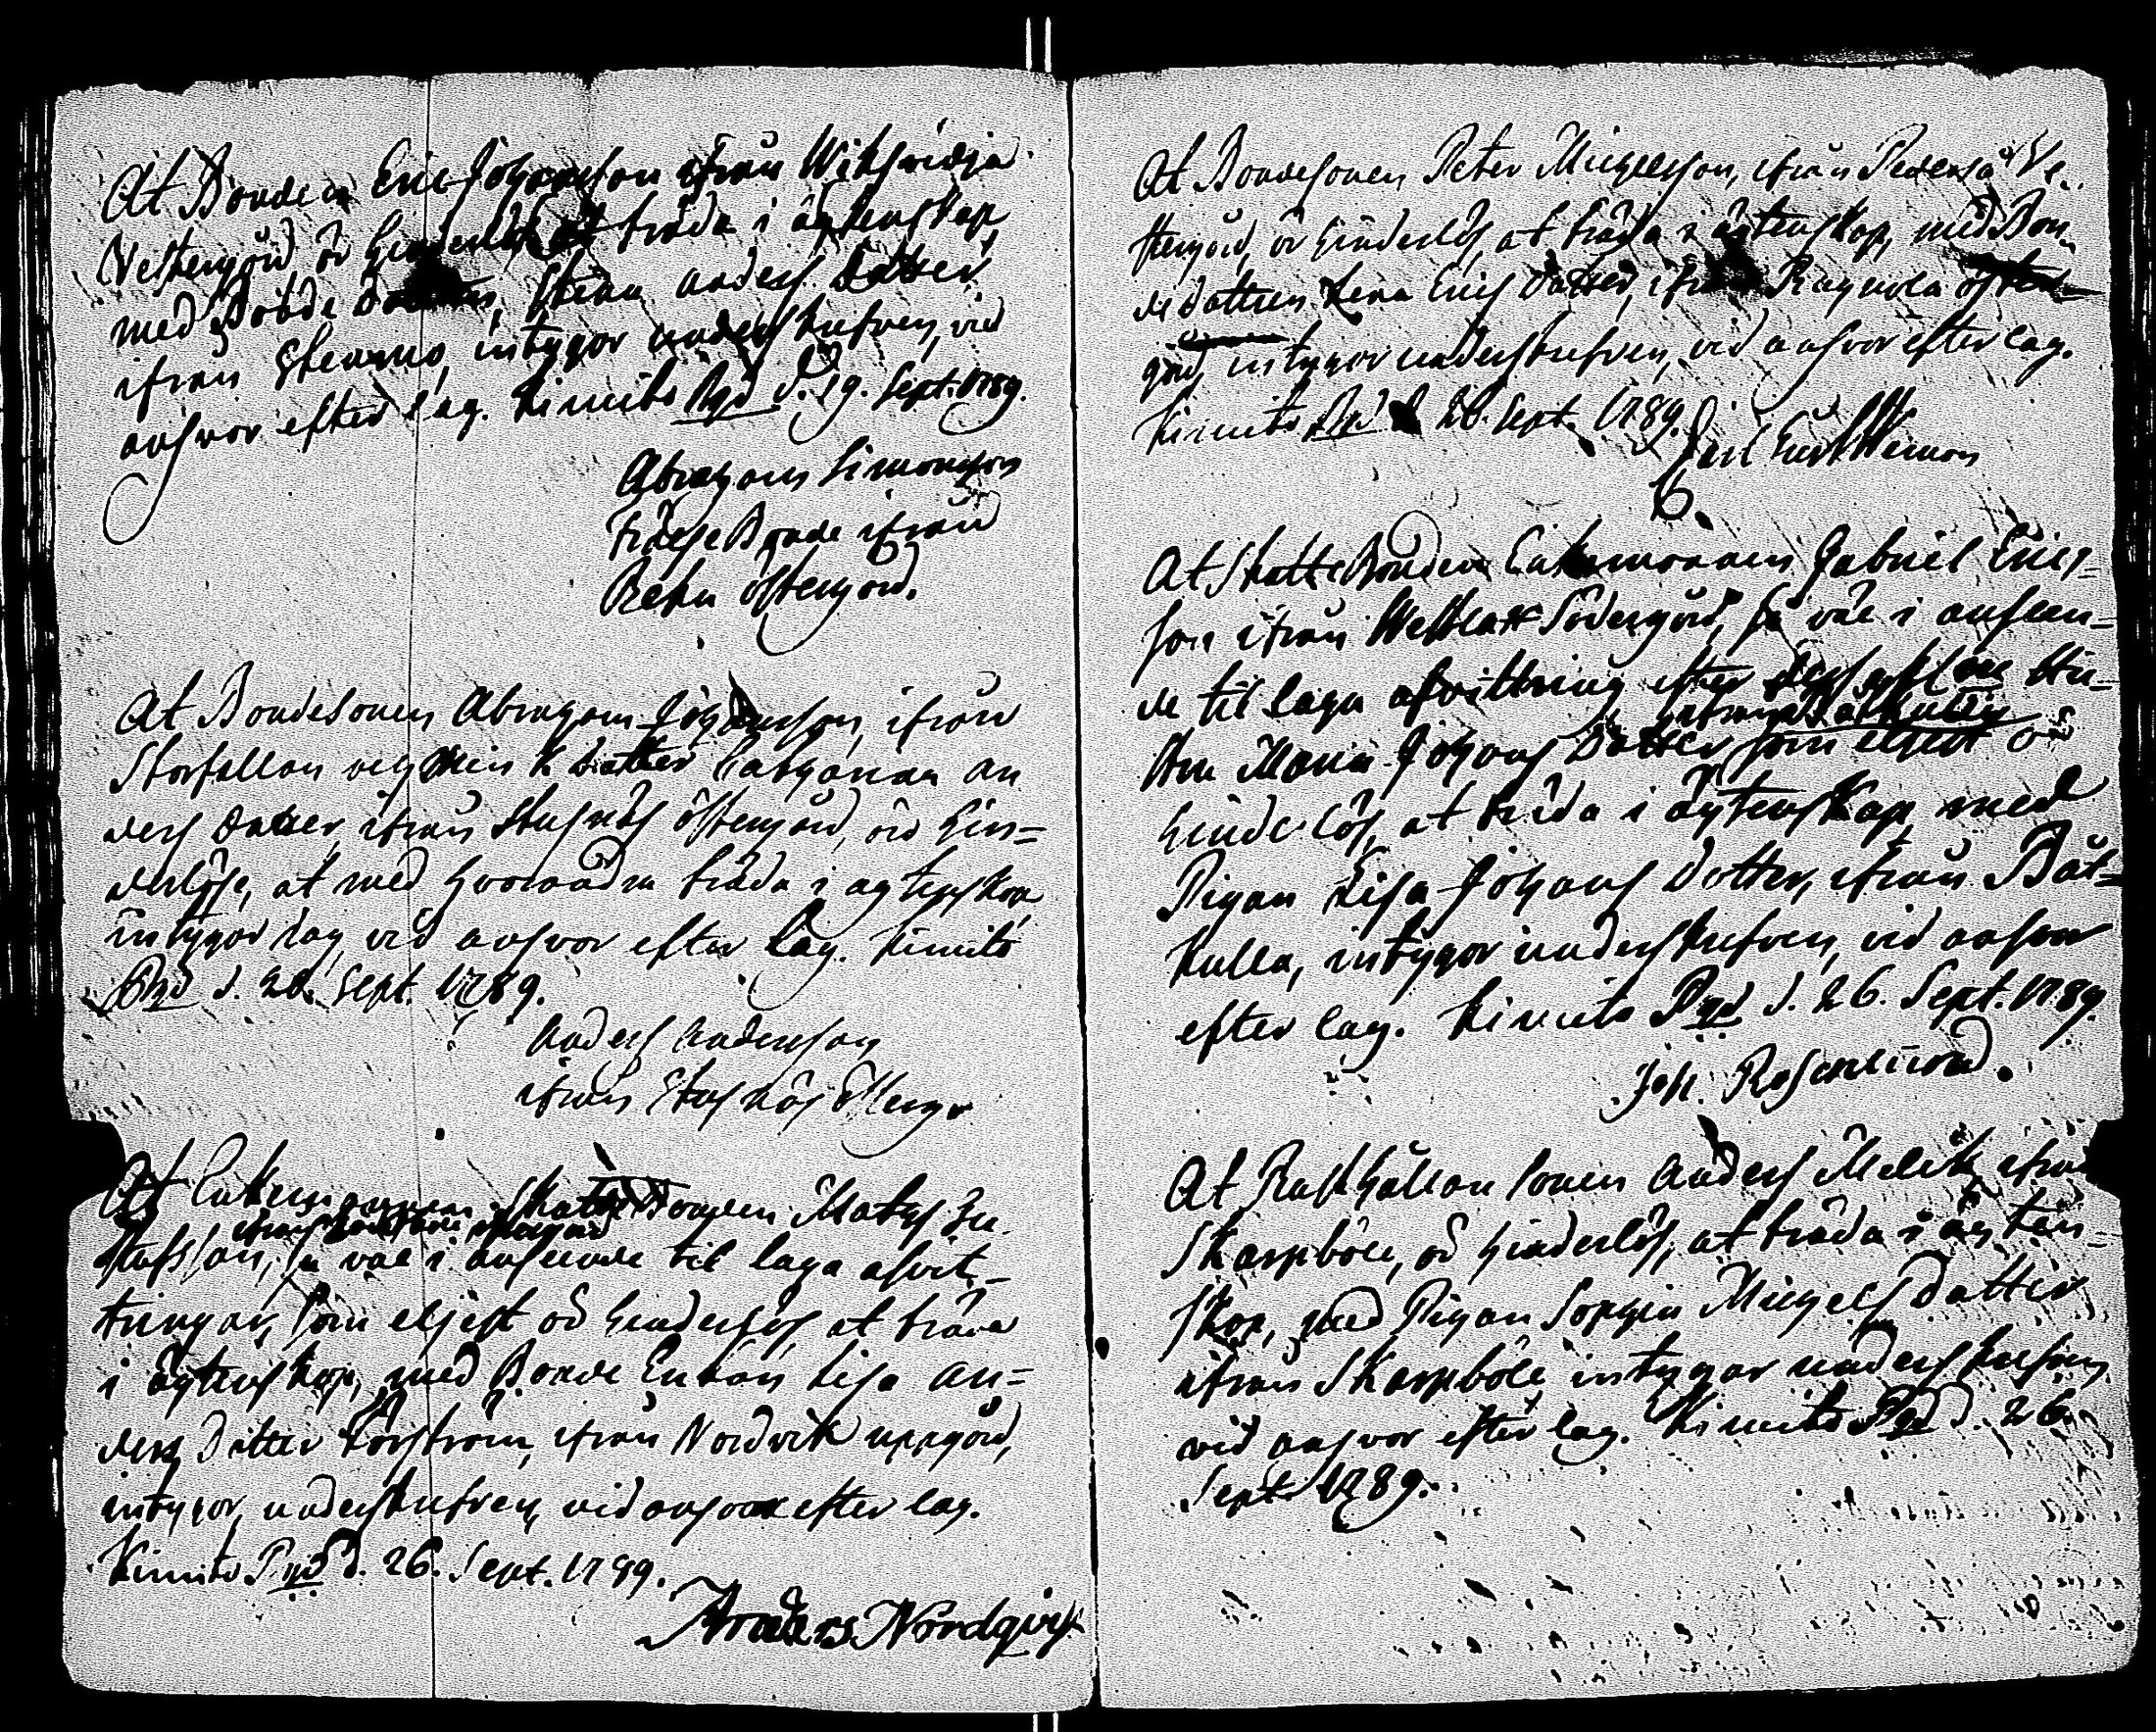 At Bonden Eric Johansson ifrån Wiksvidja
Vestergård är hinderlös at träda i ägtenskap
med Bonde dottren, Stina Anders Dotter
ifrån Stennmo, intygar underskrefven, vid
answar efter lag. Kimito Pgd d. 19. Sept. 1789.
Abraham Simonsson
Frälse Bonde ifrån
Reku östergård.
At Bondesonen Abraham Johansson, ifrån
Storfallan och Dotter Catharina An
ders Dotter, ifrån Stusnäs östergård, är hin=
derlöse, at med hvarandra träda i ägtenskap
intygar jag vid answar efter lag. Kimito
Pgd d. 20. Sept. 1789.
Anders Andersson
ifrån Stusnäs österg
At Enkemannen Skatte Bonden Mats Gu
stafsson, så väl i anseende til laga afvit=
tringar, som eljest är hinderlös at träda
i ägtenskap, med Bonde Enkan Lisa An=
ders Dotter Forström, ifrån Nordvik uppgård,
intygar, underskrefven, vid answar efter lag.
Kimito Pgd d. 26. Sept. 1789.
Anders Nordqvist
At Bondesonen Peter Michelsson, ifrån Pederså Ve
stergård, är hinderlös, at träda i ägtenskap, med Bon
de dottren Lena Erics Dotter, ifrån Ragnola
gård, intygar underskrefven, vid answar efter lag.
Kimito Pgd 26. Sept. 1789.
Carl Gust. Weman
At Skatte Bonden Enkemannen Gabriel Erics=
son ifrån Westlax Södergård, så väl i anseen=
de til laga afvittring efter dess aflne Hu=
stru Maria Johans Dotter som eljest är
hinderlös, at träda i ägtenskap med
Pigan Lisa Johans Dotter, ifrån Båt=
kulla, intygar underskrefven, vid answar
efter lag. Kimito Pgd d. 26. Sept. 1789.
Joh. Rosenlund.
At Rusthållare sonen Anders Melik, ifrån
Skarpböle, är hinderlös, at träda i ägten=
skap, med Pigan Sophia Michels Dotter
ifrån Skarpböle intygar underskrefven,
vid answar efter lag. Kimito Pgd d. 26.
Sept. 1789.